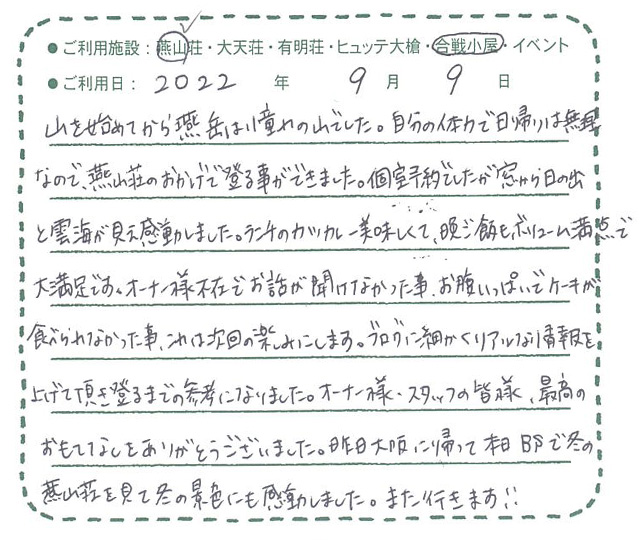 ●ご利用施設：燕山荘・大天荘・有明荘・ヒュッテ大槍・合戦小屋・イベント
●ご利用日：2022年 9月 9日
山を始めてから燕岳は憧れの山でした。自分の体力で日帰りは無理
なので、燕山荘のおかげで登る事ができました。個室予約でしたが窓から日の出
と雲海が見え感動しました。ランチのカツカレー美味しくて、晩ご飯もボリューム満点で
大満足です。オーナー様不在でお話が聞けなかった事、お腹いっぱいでケーキが
食べられなかった事、これは次回の楽しみにします。ブログに細かくリアルな情報を
上げて頂き登るまでの参考になりました。オーナー様・スタッフの皆様、最高の
おもてなしをありがとうございました。昨日大阪に帰って本日BSで冬の
燕山荘を見て冬の景色にも感動しました。また行きます!!